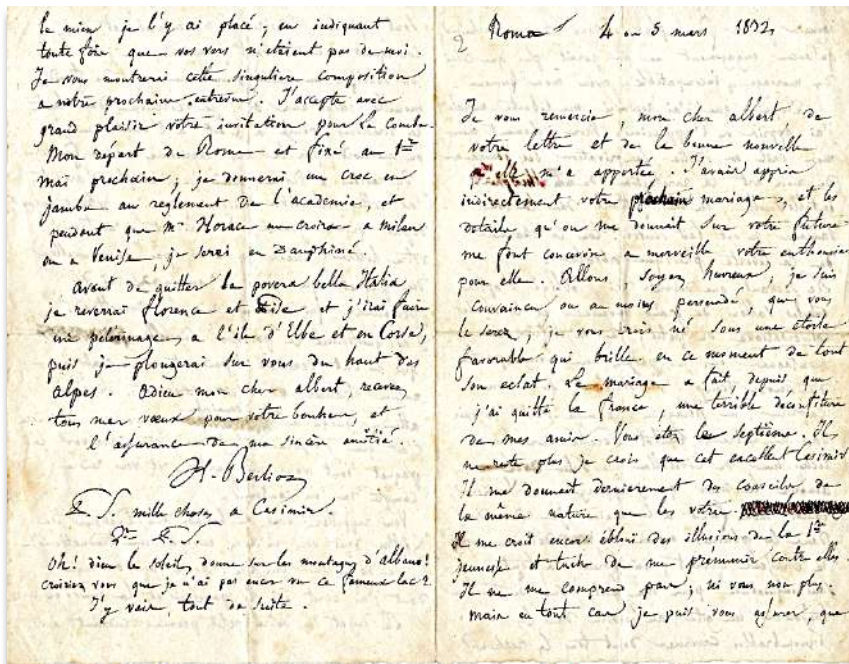 le mien je l'y ai placé; en indiquant
toute fois que vos vers n'etaient pas de moi.
Je vous montrerai cette singuliere composition
a notre prochaine entrevue. J'accepte avec
grand plaisir votre invitation pour La Combe.
Mon départ de Rome et fixé au 1er
mai prochain; je donnerai un croc en
jambe au reglement de l'academie, et
pendant que Mr Horace me croira a milan
ou a Venise, je serai en Dauphiné.
Avant de quitter la povera bella Italia
je reverrai florence et Pise et j'irai faire
un pelerinage, a l'île d'Elbe et en Corse,
puis je plongerai sur vous du haut des
alpes. adieu mon cher albert, recevez
tous mes vœux pour votre bonheur, et
l'assurance de ma sincère amitié.
H. Berlioz
P. S. mille choses a Casimir.
2me P. S.
Oh! dieu le soleil, donne sur les montagnes d'albano!
croiriez vous que je n'ai pas encor vu ce fameux lac?
J'y vais tout de suite.
2 Rome 4 ou 5 mars 1832
Je vous remercie, mon cher albert, de
votre lettre et de la bonne nouvelle
qu'elle m'a apportée. J'avais appris
indirectement votre prochain mariage, et les
details qu'on me donnait sur votre future
me font concevoir a merveille votre enthousia
pour elle. Allons, soyez heureux, je suis
convaincu ou au moins persuadé, que vous
le serez, je vous crois né sous une étoile
favorable qui brille en ce moment de tout
son eclat. Le mariage a fait, depuis que
j'ai quitté la france, une terrible déconfiture
de mes amis. Vous etes le septième. Il
ne reste plus je crois que cet excellent Casimir
Il me donnait dernierement des conseils de
la même nature que les votres
Il me croit encor ébloui des illusions de la 1ère
jeunesse et tache de me prémunir contre elles.
Il ne me comprend pas, ni vous non plus.
Mais en tout cas je puis vous assurer, que